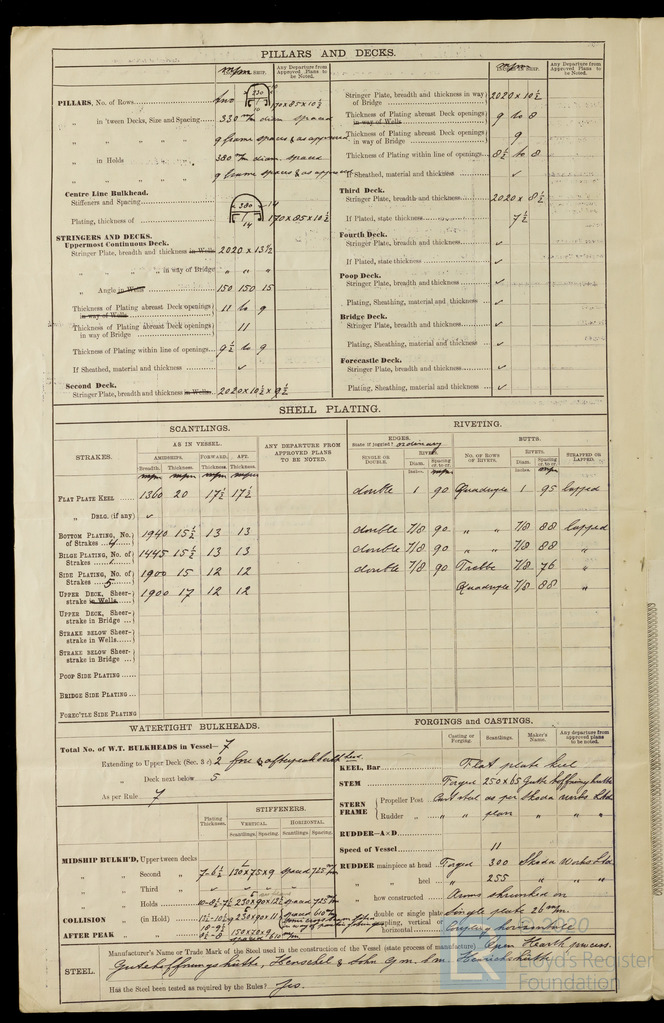 PILLARS AND DECKS.
m/m SHIP.
Any Departure from Approved Plans to be Noted.
PILLARS, No. of Rows
two
230
170 x 85 x 10½
" in 'tween Decks, Size and Spacing
330 m/m diam spaced
" " " "
9 frame spaces & as approved
" in Holds
380 m/m diam. spaced
" "
9 frame spaces & as approved
Centre Line Bulkhead.
Stiffeners and Spacing
380
14
14
170 x 85 x 10½
Plating, thickness of
STRINGERS AND DECKS.
Uppermost Continuous Deck.
Stringer Plate, breadth and thickness in Wells
2020 x 13½
" " " " in way of Bridge
" " "
" Angle in Wells
150 150 15
Thickness of Plating abreast Deck openings in way of Wells
11 to 9
Thickness of Plating abreast Deck openings in way of Bridge
11
Thickness of Plating within line of openings
9½ to 9
If Sheathed, material and thickness
✓
Second Deck.
Stringer Plate, breadth and thickness in Wells
2020 x 10½ x 9½
m/m SHIP.
Any Departure from Approved Plans to be Noted.
Stringer Plate, breadth and thickness in way of Bridge
2020 x 10½
Thickness of Plating abreast Deck openings in way of Wells
9 to 8
Thickness of Plating abreast Deck openings in way of Bridge
9
Thickness of Plating within line of openings
8½ to 8
If Sheathed, material and thickness
✓
Third Deck.
Stringer Plate, breadth and thickness
2020 x 8½
If Plated, state thickness
7½
Fourth Deck.
Stringer Plate, breadth and thickness
✓
If Plated, state thickness
✓
Poop Deck.
Stringer Plate, breadth and thickness
✓
Plating, Sheathing, material and thickness
✓
Bridge Deck.
Stringer Plate, breadth and thickness
✓
Plating, Sheathing, material and thickness
✓
Forecastle Deck.
Stringer Plate, breadth and thickness
✓
Plating, Sheathing, material and thickness
✓
SHELL PLATING.
SCANTLINGS.
RIVETING.
STRAKES.
AS IN VESSEL.
ANY DEPARTURE FROM APPROVED PLANS TO BE NOTED.
AMIDSHIPS. FORWARD. AFT.
Breadth. Thickness. Thickness. Thickness.
EDGES.
State if joggled? ordinary
SINGLE OR DOUBLE.
RIVETS.
Diam. Spacing cr. to cr.
BUTTS.
NO. OF ROWS OF RIVETS.
RIVETS.
Diam. Spacing cr. to cr.
STRAPPED OR LAPPED.
FLAT PLATE KEEL 1360 20 17½ 17½ double 1 90 Quadruple 1 95 lapped
" DBLG. (if any) ✓
BOTTOM PLATING, No. of Strakes 4 1940 15½ 13 13 double 7/8 90 " " 7/8 88 lapped
BILGE PLATING, No. of Strakes 1 1445 15½ 13 13 double 7/8 90 " " 7/8 88 "
SIDE PLATING, No. of Strakes 5 1900 15 12 12 double 7/8 90 Treble 7/8 76 "
UPPER DECK, Sheerstrake in Wells 1900 17 12 12 Quadruple 7/8 88 "
UPPER DECK, Sheerstrake in Bridge
STRAKE BELOW SHEERstrake in Wells
STRAKE BELOW SHEERstrake in Bridge
POOP SIDE PLATING
BRIDGE SIDE PLATING
FOREC'TLE SIDE PLATING
WATERTIGHT BULKHEADS.
Total No. of W.T. BULKHEADS in Vessel— 7
Extending to Upper Deck (Sec. 3 c) 2 fore & afterpeak bulkheads
" Deck next below 5
As per Rule 7
Plating Thickness.
STIFFENERS.
VERTICAL. HORIZONTAL.
Scantlings. Spacing. Scantlings. Spacing.
MIDSHIP BULKH'D, Upper tween decks
" " Second " 7-6½ 130x75x9 spaced 725 m/m
" " Third " ✓
" " Holds
COLLISION " (in Hold)
AFTER PEAK " "
FORGINGS and CASTINGS.
Casting or Forging. Scantlings. Maker's Name. Any departure from approved plans to be noted.
KEEL, Bar Flat plate keel
STEM Forged 250 x 65 Gutehoffnungshütte
STERN FRAME Propeller Post Cast steel as per Skoda works Ltd
Rudder " " " plan " " "
RUDDER—A×D
Speed of Vessel 11
RUDDER mainpiece at head Forged 300 Skoda Works Ltd
" " heel " 255 " " "
" how constructed Arms shrunked on
" double or single plate Single plate 26 m/m.
" coupling, vertical or horizontal Coupling horizontale
STEEL.
Manufacturer's Name or Trade Mark of the Steel used in the construction of the Vessel (state process of manufacture) Open Hearth process.
Gutehoffnungshütte, Henschel & Sohn G.m.b.H. Henrichshütte
Has the Steel been tested as required by the Rules? Yes.
© 2020
Lloyd's Register
Foundation